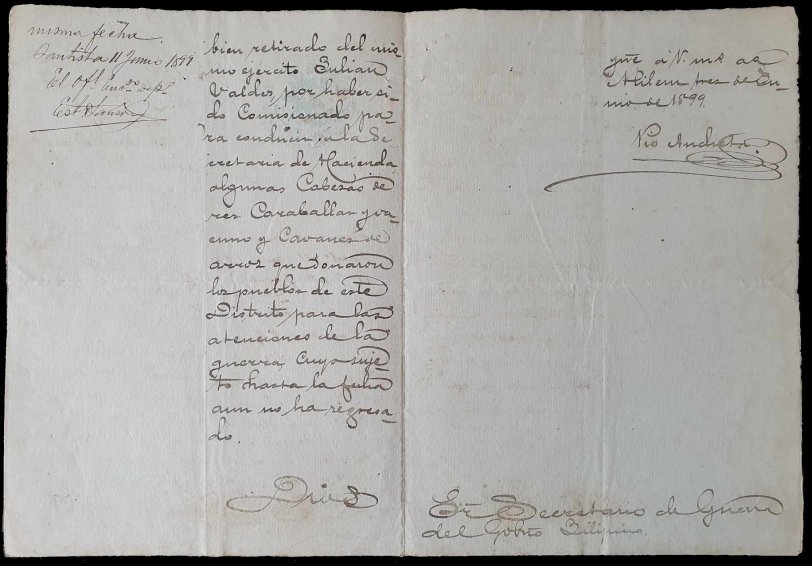 misma fecha
Bautista 11 Junio 1899
El Of.
bien retirado del mis-
mo ejercito Julian
Valdez, por haber si-
do Comisionado pa-
ra conducir á la Se
cretaria de Hacienda,
algunas Cabezas de
res Caraballar y va-
cuno y Cavanes de
arroz que donaron
los pueblos de este
Distrito, para las
atenciones de la
guerra cuyo suje-
to hasta la fecha
aun no ha regresa-
do.
Dios
gue á V. m.s a.s
Alilem tres de Ju-
nio de 1899.
Pio
Sr. Secretario de Guerra
del Gobno Filipino.